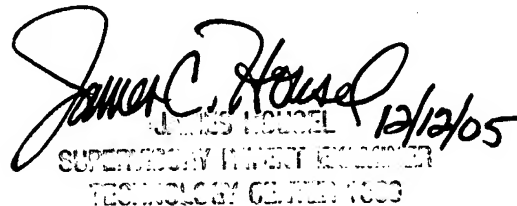 James C. Housel 12/12/05
JAMES HOUSEL
SUPERVISORY PATENT EXAMINER
TECHNOLOGY CENTER 1600